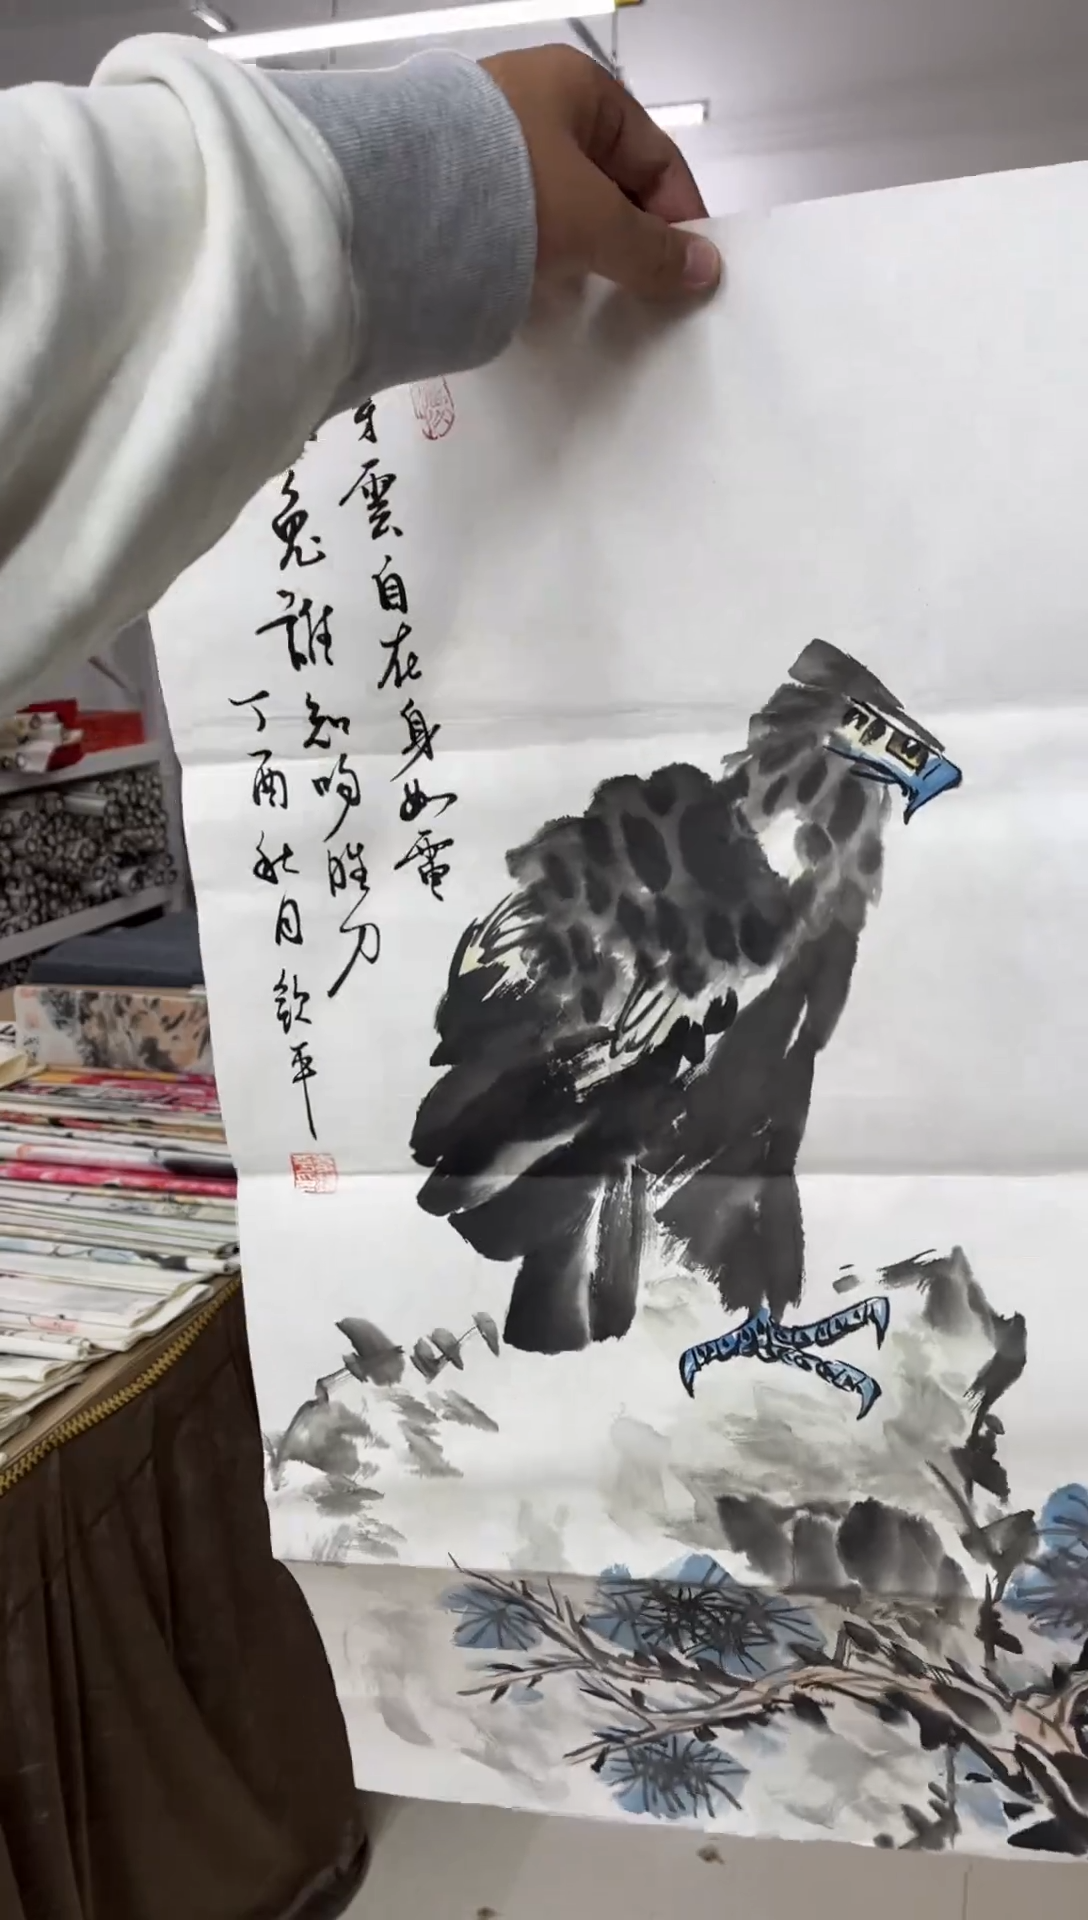 雲自在身如電
兔誰知吻勝刀
丁酉秋月欽平